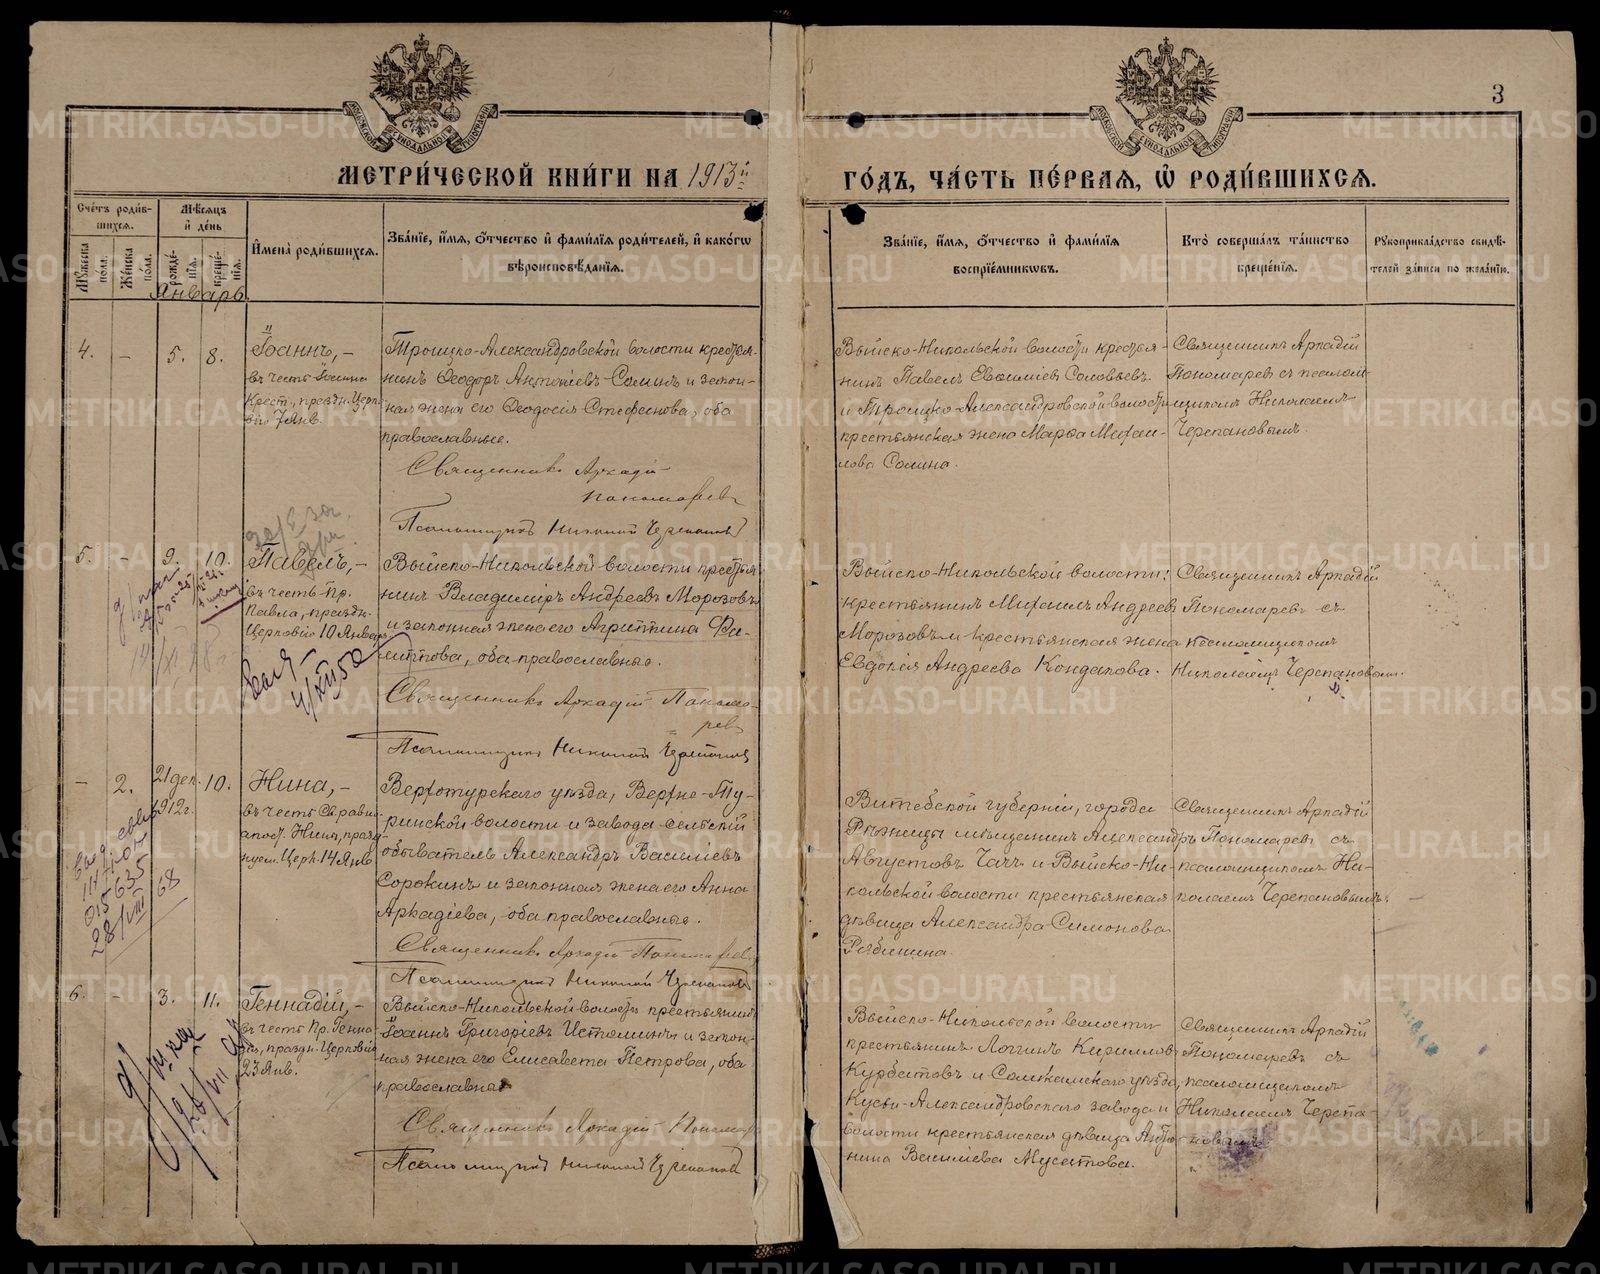 3
МЕТРИ́ЧЕСКОЙ КНИ́ГИ НА 1913й
ГО́ДЪ, ЧА́СТЬ ПЕ́РВАЯ, Ѡ РОДИ́ВШИХСЯ.
Сче́тъ роди́в-
шихся.
Мѣ́сяцъ
и҆ де́нь
И҆мена̀ роди́вшихся.
Зва́нїе, и҆́мя, ѻ҆́тчество и҆ фами́лїя роди́телей, и҆ како́гѡ
вѣроисповѣ́данїя.
Зва́нїе, и҆́мя, ѻ҆́тчество и҆ фами́лїя
воспрїе́мникѡвъ.
Кто̀ соверша́лъ та́инство
креще́нїя.
Рꙋкоприкла́дство свидѣ́-
телей за́писи по жела́нїю.
Мꙋ́жеска
по́ла.
Же́нска
по́ла.
рожде́-
нїя.
креще́-
нїя.
Январь
4. - 5. 8.
Іоаннъ, -
въ честь Іоанна
Крест., праздн. Церко
вію 7 Янв.
Троицко-Александровской волости крестья-
нинъ Ѳеодоръ Антоніевъ Соминъ и закон-
ная жена его Ѳеодосія Стефанова, оба
православные.
Священникъ Аркадій
Пономаревъ
Псаломщикъ Николай Черепановъ
Выйско-Никольской волости крестья-
нинъ Павелъ Евѳиміевъ Соловьевъ
и Троицко-Александровской волости
крестьянская жена Марѳа Михаи-
лова Сомина.
Священникъ Аркадій
Пономаревъ съ псалом-
щикомъ Николаемъ
Черепановымъ.
5. - 9. 10.
Павелъ, -
въ честь Пр.
Павла, праздн.
Церковію 10 Января
Выйско-Никольской волости крестья
нинъ Владиміръ Андреевъ Морозовъ
и законная жена его Агриппина Фа-
иттова, оба православные.
Священникъ Аркадій Понома-
ревъ
Псаломщикъ Николай Черепановъ
Выйско-Никольской волости:
крестьянинъ Михаилъ Андреевъ
Морозовъ и крестьянская жена
Евдокія Андреева Кондакова.
Священникъ Аркадій
Пономаревъ съ
псаломщикомъ
Николаемъ Черепановым.
- 2. 21 дек. 10.
1912 г.
Нина, -
въ честь Св. равно
апост. Нины, празд
нуем. Церк. 14 Янв
Верхотурскаго уѣзда, Верхне-Ту-
ринской волости и завода сельскій
обыватель Александръ Василіевъ
Сорокинъ и законная жена его Анна
Аркадіева, оба православные.
Священникъ Аркадій Пономаревъ
Псаломщикъ Николай Черепановъ
Витебской губерніи, города
Рѣжицы мѣщанинъ Александръ
Августовъ Чачъ и Выйско-Ни-
кольской волости крестьянская
дѣвица Александра Симонова
Рябинина.
Священникъ Аркадій
Пономаревъ съ
псаломщикомъ Ни-
колаемъ Черепановымъ.
015635
28/VIII 68
6. - 3. 11.
Геннадій, -
въ честь Пр. Генна
дія, праздн. Церковію
23 Янв.
Выйско-Никольской волости крестьянинъ
Іоаннъ Григоріевъ Истоминъ и закон-
ная жена его Елисавета Петрова, оба
православные
Священникъ Аркадій Пономар
Псаломщикъ Николай Черепановъ
Выйско-Никольской волости
крестьянинъ Логгинъ Кирилловъ
Курбатовъ и Соликамскаго уѣзда,
Кусье-Александровскаго завода и
волости крестьянская дѣвица Анто-
нина Васильева Мусатова.
Священникъ Аркадій
Пономаревъ съ
псаломщикомъ
Николаемъ Черепа-
новымъ
METRIKI.GASO-URAL.RU